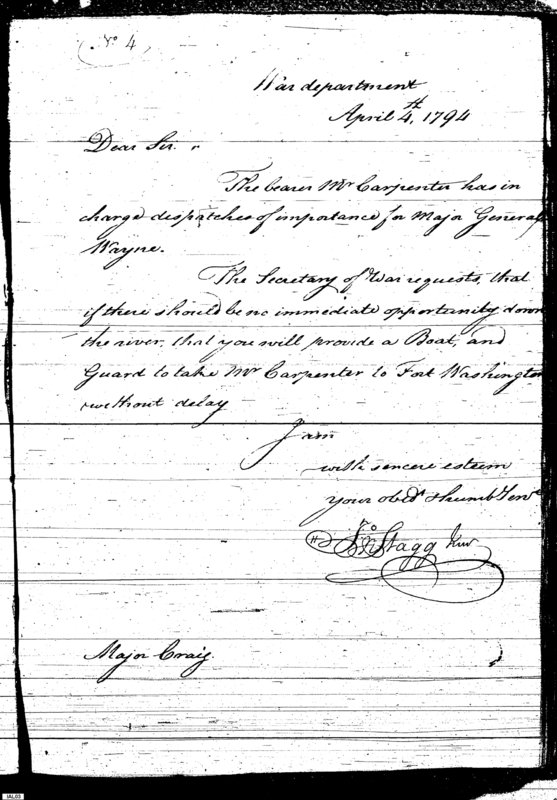 No 4
War department
April 4th, 1794
Dear Sir.
The bearer Mr Carpenter has in
charge despatches of importance for Major General
Wayne.
The Secretary of War requests, that
if there should be no immediate opportunity down
the river, that you will provide a Boat, and
Guard to take Mr Carpenter to Fort Washington
without delay
I am
with sincere esteem
your obed. & humb Serv.
Jno Stagg Junr
Major Craig.
IAL03